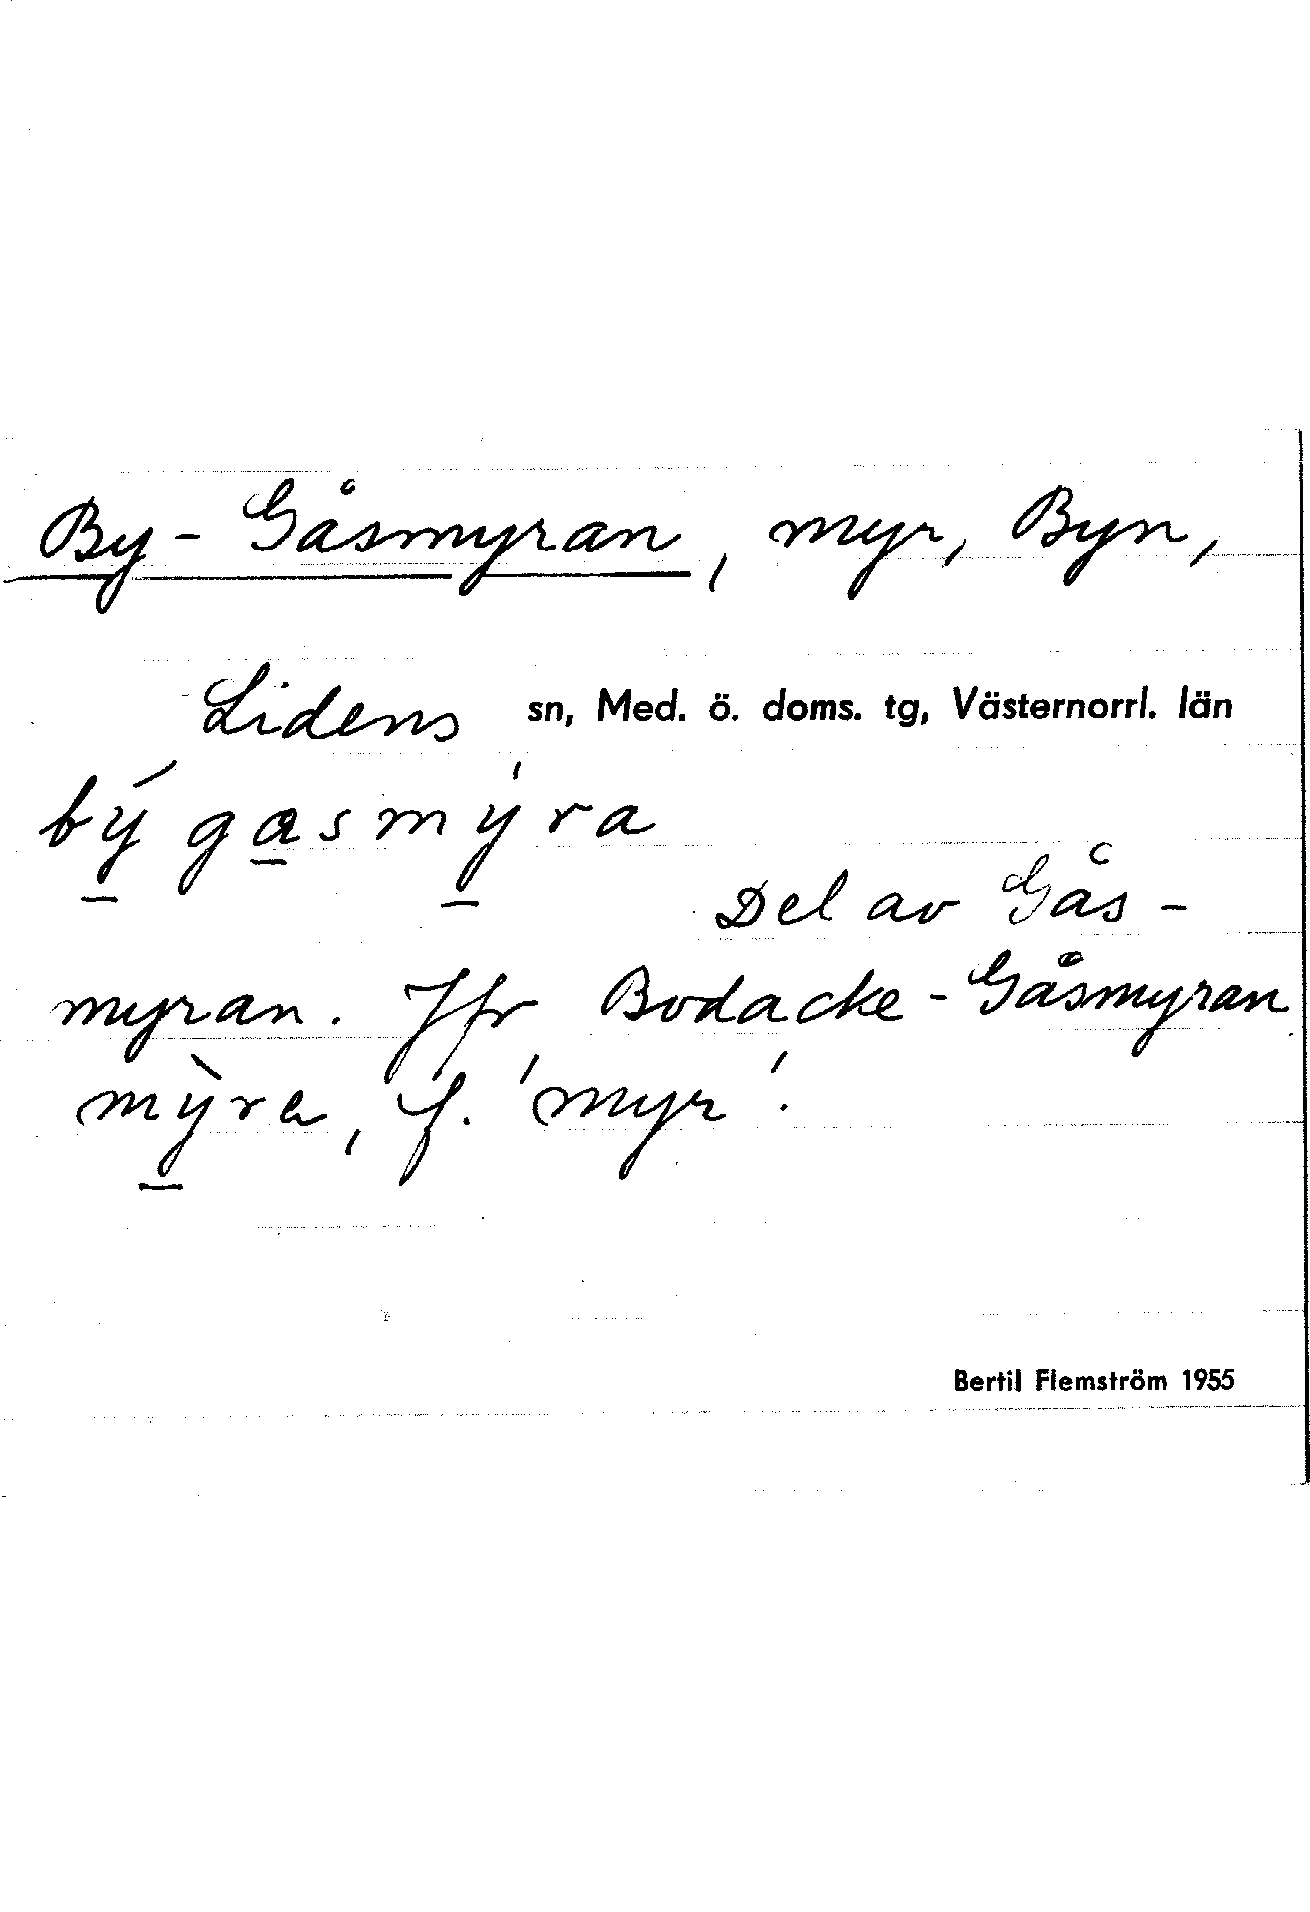 By-Gåsmyran, myr, Byn,
Lidens sn, Med. ö. doms. tg, Västernorrl. län
bý̱ ga̱smý̱ra
Del av Gås-
myran. Jfr Bodacke-Gåsmyran
mỳ̱ra, f. 'myr'.
Bertil Flemström 1955